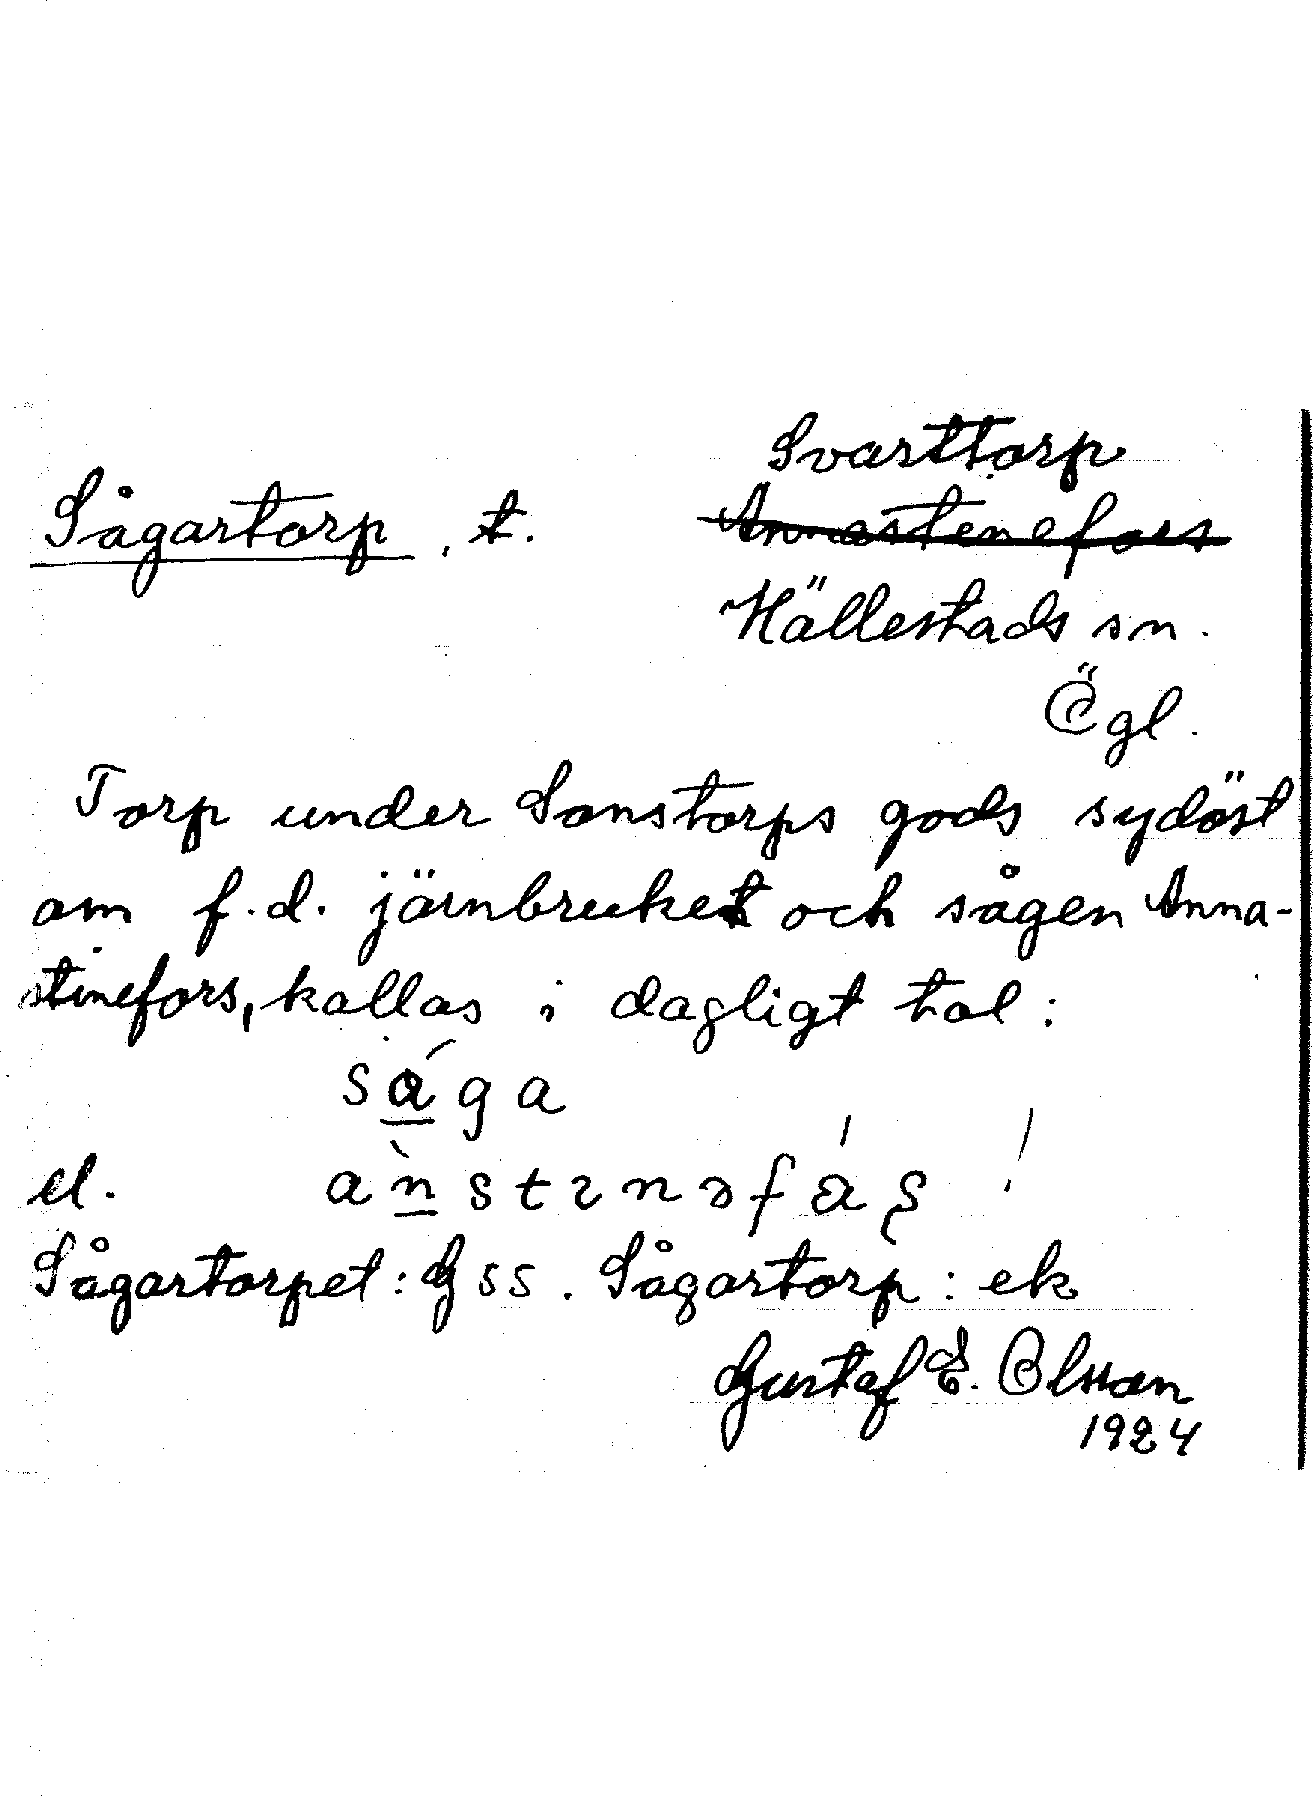 Svarttorp
Sågartorp, t. Annastenefors
Hällestads sn.
Ögl.
Torp under Sonstorps gods sydöst
om f.d. järnbruket och sågen Anna-
stinefors, kallas i dagligt tal:
såga
el. anstɩnəfás̨ !
Sågartorpet: Gss. Sågartorp: ek
Gustaf E. Olsson
1924